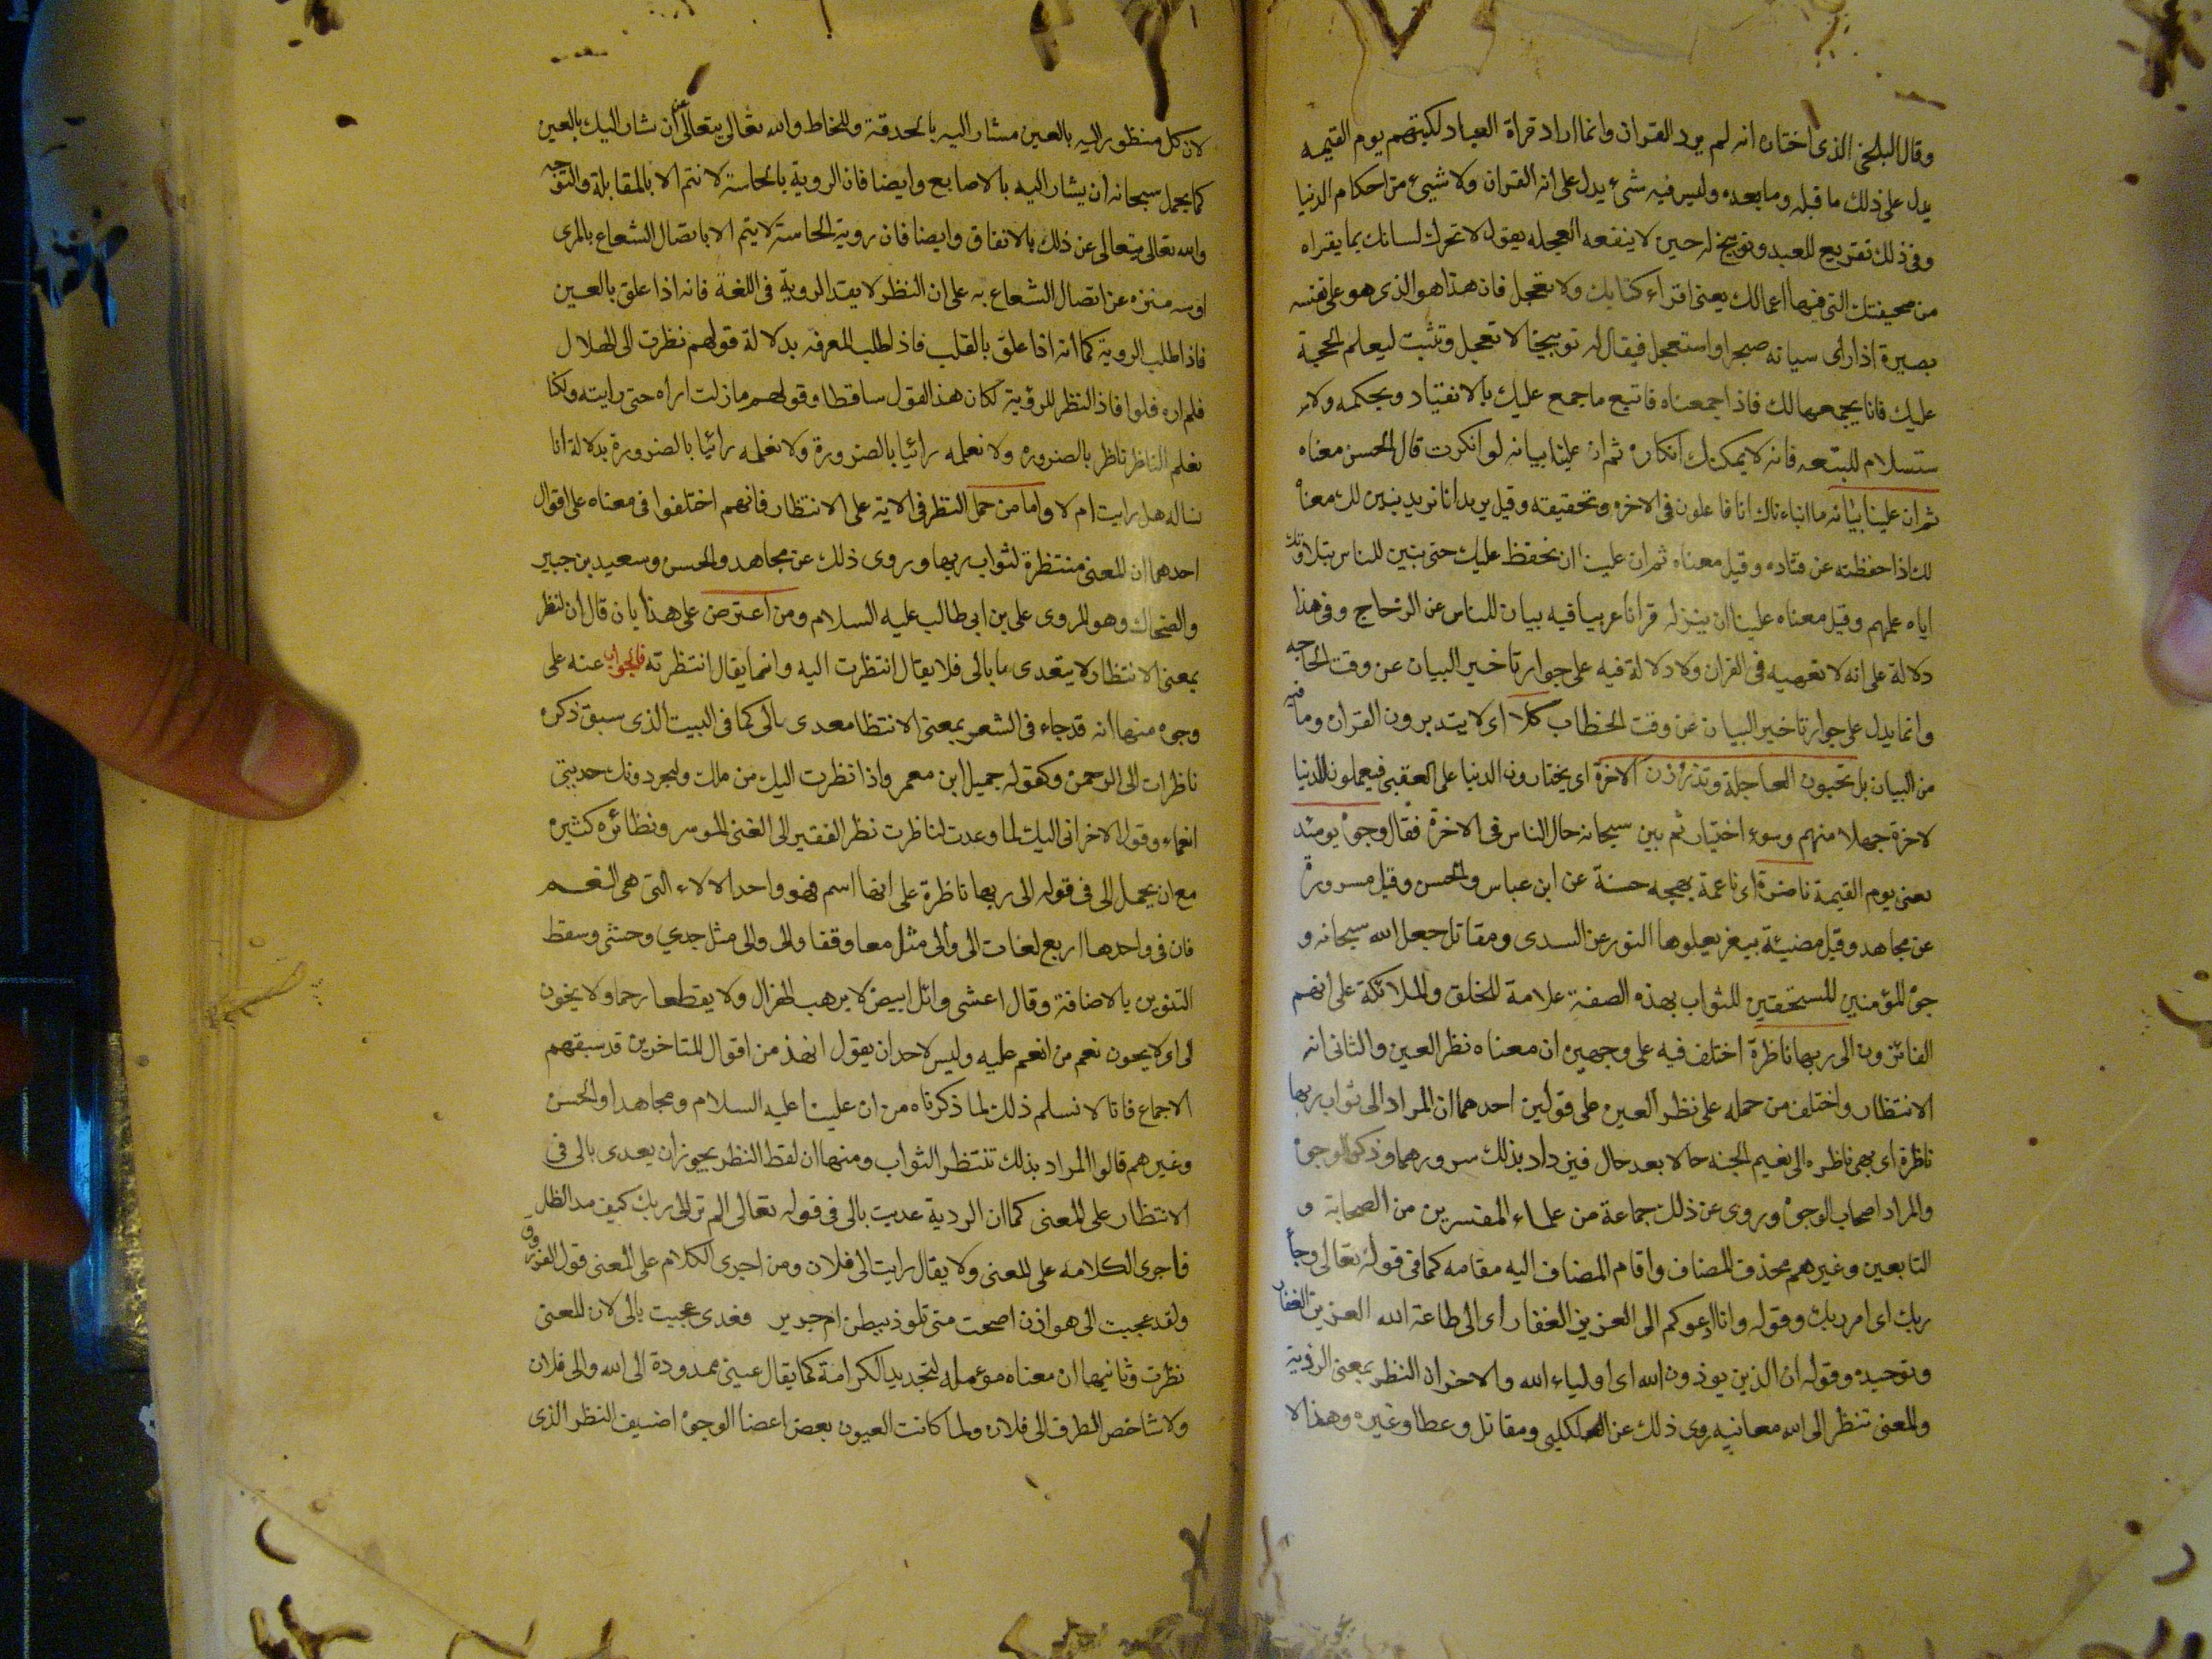 وقال البلخى الذى اختاره انه لم يرد القران وانما اراد قراة العباد لكتبهم يوم القيمه
يدل على ذلك ما قبله وما بعده وليس فيه شئ يدل على انه القران ولا شيئ من احكام الدنيا
وفى ذلك تقريع للعبد وتوبيخ له حين لا ينفعه العجله يقول لا تحرك لسانك بما يقراه
من صحيفتك التى فيها اعمالك يعنى اقراء كتابك ولا تعجل فان هذا هو الذى هو على نفسه
بصيرة اذا راى سياته ضجرا واستعجل فيقال له توبيخا لا تعجل وتثبت ليعلم الحجة
عليك فانا نجمعها لك فاذا جمعناه فاتبع ما جمع عليك بالانقياد وبحكمه ولا
ستسلام للتبعه فانه لا يمكنك انكاره ثم ان علينا بيانه لو انكرت قال الحسن معناه
ثم ان علينا بيانه ما انباءناك انا فاعلون فى الاخره وتحقيقته وقيل يريد انا نريد نبين لك معناه
لك اذا حفظته عن قتاده وقيل معناه ثم ان علينا ان نحفظ عليك حتى تبين للناس بتلاوتك
اياه عليهم وقيل معناه علينا ان ننزله قرانا عربيا فيه بيان للناس عن الزجاج وفى هذا
دلالة على انه لا تعميه فى القران ولا دلالة فيه على جواز تاخير البيان عن وقت الحاجه
وانما يدل على جواز تاخير البيان عن وقت الخطاب كلا اى لا يتدبرون القران وما فيه
من البيان بل تحبون العاجلة وتذرون الاخرة اى يختارون الدنيا على العقبى فيعملون للدنيا
لاخرة جهلا منهم وسوء اختيار ثم بين سبحانه حال الناس فى الاخرة فقال وجوه يومئذ
يعنى يوم القيمة ناضرة اى ناعمة بهجه حسنة عن ابن عباس والحسن وقيل مسرورة
عن مجاهد وقيل مضيئة بيض يعلوها النور عن السدى ومقاتل جعل الله سبحانه و
جوه المؤمنين المستحقين للثواب بهذه الصفة علامة للخلق والملائكة على انهم
الفائزون الى ربها ناظرة اختلف فيه على وجهين ان معناه نظر العين والثانى انه
الانتظار واختلف من حمله على نظر العين على قولين احدهما ان المراد الى ثواب ربها
ناظرة اى هى ناظره الى نعيم الجنه حالا بعد حال فيزداد بذلك سرورهما وذكر الوجوه
والمراد اصحاب الوجوه وروى عن ذلك جماعة من علماء المفسرين من الصحابة و
التابعين وغيرهم محذف المضاف واقام المضاف اليه مقامه كما فى قوله تعالى وجاء
ربك اى امر ربك وقوله وانا ادعوكم الى العزيز الغفار اى الى طاعة الله العزيز الغفار
وتوحيده وقوله ان الذين يوذون الله اى اولياء الله والاخر ان النظر بمعنى الرؤية
والمعنى تنظر الى الله معاينه روى ذلك عن الكلبى ومقاتل وعطا وغيره وهذا لا
لان كل منظور اليه بالعين مشار اليه بالحدقة واللحاظ والله تعالى يتعالى عن ان يشار اليك بالعين
كما يجمل سبحانه ان يشار اليه بالاصابع وايضا فان الروية بالحاسة لا تتم الا بالمقابلة والتوجه
والله تعالى متعالى عن ذلك بالاتفاق وايضا فان روية الحاسة لا يتم الا باتصال الشعاع بالمرى
والله منزه عن اتصال الشعاع به على ان النظر لا يفيد الروية فى اللغة فانه اذا علق بالعين
فاذا طلب الروية كما انه اذا علق بالقلب فاذ طلب المعرفه بدلالة قولهم نظرت الى الهلال
فلم اره فلو افاد النظر للرؤية لكان هذ القول ساقطا وقولهم مازلت اراه حتى رايته ولكنا
نعلم الناظر ناظر بالضروره ولا نعلمه رائيا بالضرورة ولا نعلمه رائيا بالضرورة بدلالة انا
نساله هل رايت ام لا واما من حمل النظر فى الاية على الانتظار فانهم اختلفوا فى معناه على اقوال
احدهما ان المعنى منتظرة لثواب ربها وروى ذلك عن مجاهد والحسن وسعيد بن جبير
والضحاك وهو المروى على بن ابى طالب عليه السلام ومن اعترض على هذا بان قال ان النظر
بمعنى الانتظار لا يتعدى بالى فلا يقال انتظرت اليه وانما يقال انتظرته فالجواب عنه على
وجوه منها انه قد جاء فى الشعر بمعنى الانتظا معدى بالى كما فى البيت الذى سبق ذكره
ناظرات الى الرحمن وكقوله جميل ابن معمر واذا نظرت اليك من ملك والبحر دونك جديتى
انعماء وقول الاخر انى اليك لما وعدت لناظرت نظر الفقير الى الغنى الموسر ونظائره كثيره
مع ان يحمل الى فى قوله الى ربها ناظرة على انها اسم فهو واحد الالاء التى هى النعم
فان فى واحدها اربع لغات الى والى مثل معا وقفا والى والى مثل جدي وحثى وسقط
التنوين بالاضافة وقال اعشى وائل ابيض لا يرهب الهزال ولا يقطعا رحما ولا يخون
الى اى لا يخون نعم من انعم عليه وليس لاحد ان يقول ان هذ من اقوال المتاخرين قد سبقهم
الاجماع فانا لا نسلم ذلك لما ذكرناه من ان علينا عليه السلام ومجاهدا والحسن
وغيرهم قالوا المراد بذلك تنتظر الثواب ومنها ان لفظ النظر يجوز ان يعدى بالى فى
الانتظار على المعنى كما ان الروية عديت بالى فى قوله تعالى الم تر الى ربك كيف مد الظل
فاجرى الكلامه على المعنى ولا يقال رايت الى فلان ومن اجرى الكلام على المعنى قول الفرزدق
ولقد عجبت الى هوازن اصبحت متى تلوذ ببطن ام جرير فعدى عجبت بالى لان المعنى
نظرت وثانيها ان معناه مؤمله لتجديد الكرامة كما يقال عينى ممدودة الى الله والى فلان
ولا شاخص الطرف الى فلان ولما كانت العيون بعض اعضا الوجوه اضيف النظر الذى